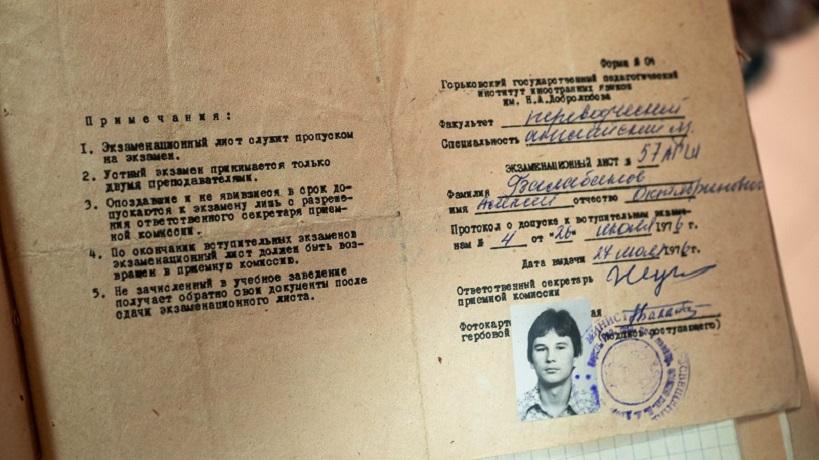 Примечания:
1. Экзаменационный лист служит пропуском
на экзамен.
2. Устный экзамен принимается только
двумя преподавателями.
3. Опоздавшие и не явившиеся в срок до-
пускаются к экзамену лишь с разреше-
ния ответственного секретаря прием-
ной комиссии.
4. По окончании вступительных экзаменов
экзаменационный лист должен быть воз-
вращен в приемную комиссию.
5. Не зачисленный в учебное заведение
получает обратно свои документы после
сдачи экзаменационного листа.
Форма № 04
Горьковский государственный педагогический
институт иностранных языков
им. Н.А.Добролюбова
Факультет переводческий
Специальность английский я.
ЭКЗАМЕНАЦИОННЫЙ ЛИСТ № 57
Фамилия Балабанов
имя Алексей отчество Октябринович
Протокол о допуске к вступительным экзаме-
нам № 4 от "26" 1976 г.
Дата выдачи 27 1976г.
Ответственный секретарь
приемной комиссии
Фотокарт ая
гербовой (подпись поступающего)